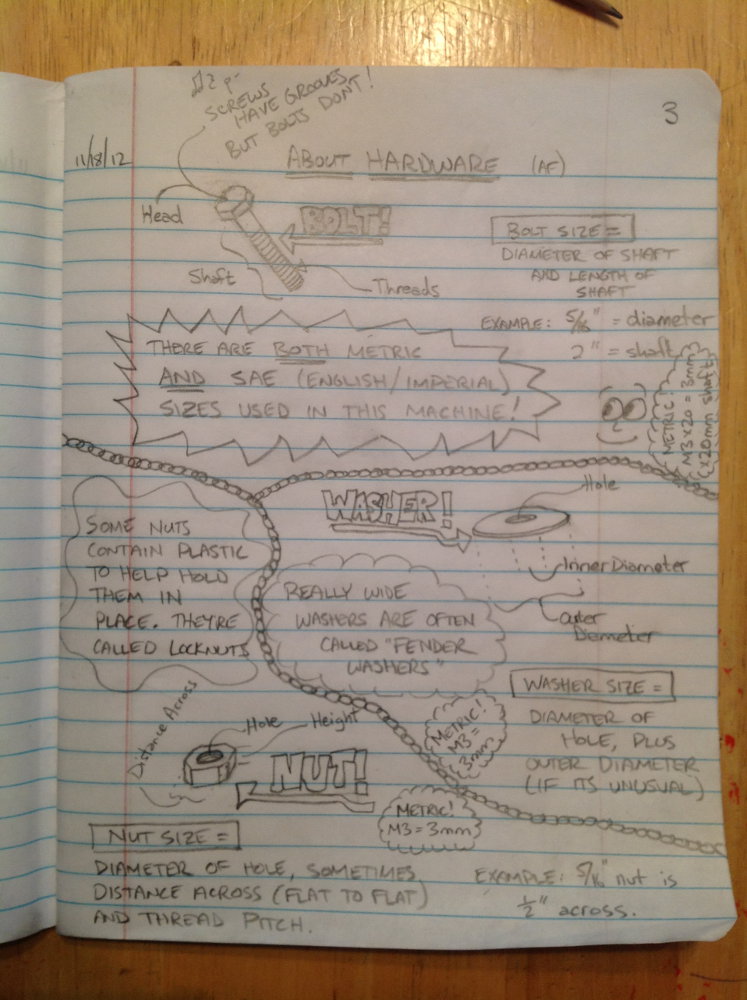 3
SCREWS
HAVE GROOVES
BUT BOLTS DONT!
11/18/12
ABOUT HARDWARE (AF)
Head
BOLT!
Shaft
Threads
BOLT SIZE =
DIAMETER OF SHAFT
AND LENGTH OF
SHAFT
EXAMPLE: 5/16" = diameter
2" = shaft
METRIC!
M3x20 = 3mm
x20mm shaft
THERE ARE BOTH METRIC
AND SAE (ENGLISH/IMPERIAL)
SIZES USED IN THIS MACHINE!
SOME NUTS
CONTAIN PLASTIC
TO HELP HOLD
THEM IN
PLACE. THEY'RE
CALLED LOCKNUTS
WASHER!
Hole
Inner Diameter
Outer
Diemeter
REALLY WIDE
WASHERS ARE OFTEN
CALLED "FENDER
WASHERS"
WASHER SIZE =
DIAMETER OF
HOLE, PLUS
OUTER DIAMETER
(IF ITS UNUSUAL)
METRIC!
M3 =
3mm
Distance Across
Hole
Height
NUT!
METRIC!
M3 = 3mm
NUT SIZE =
DIAMETER OF HOLE, SOMETIMES
DISTANCE ACROSS (FLAT TO FLAT)
AND THREAD PITCH.
EXAMPLE: 5/16" nut is
1/2" across.